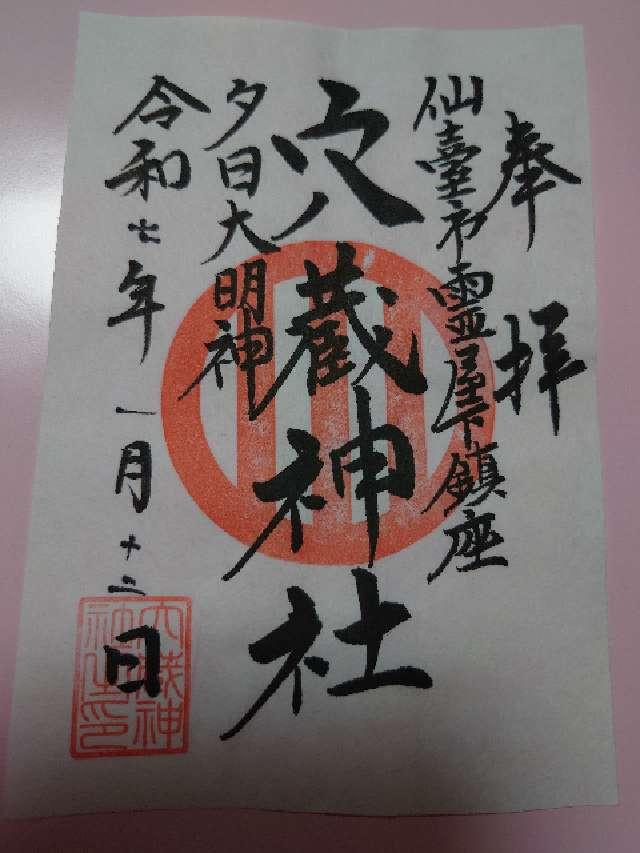 奉拝
仙臺市霊屋下鎮座
穴蔵神社
夕日大明神
令和七年一月十二日
穴蔵神
社之印